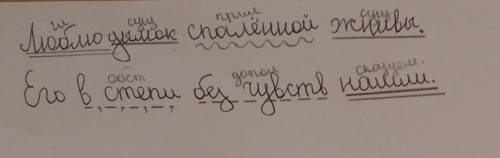 гл сущ прил сущ
Люблю дымок спалённой жнивы.
обст допол сказуем.
Его в степи без чувств нашли.